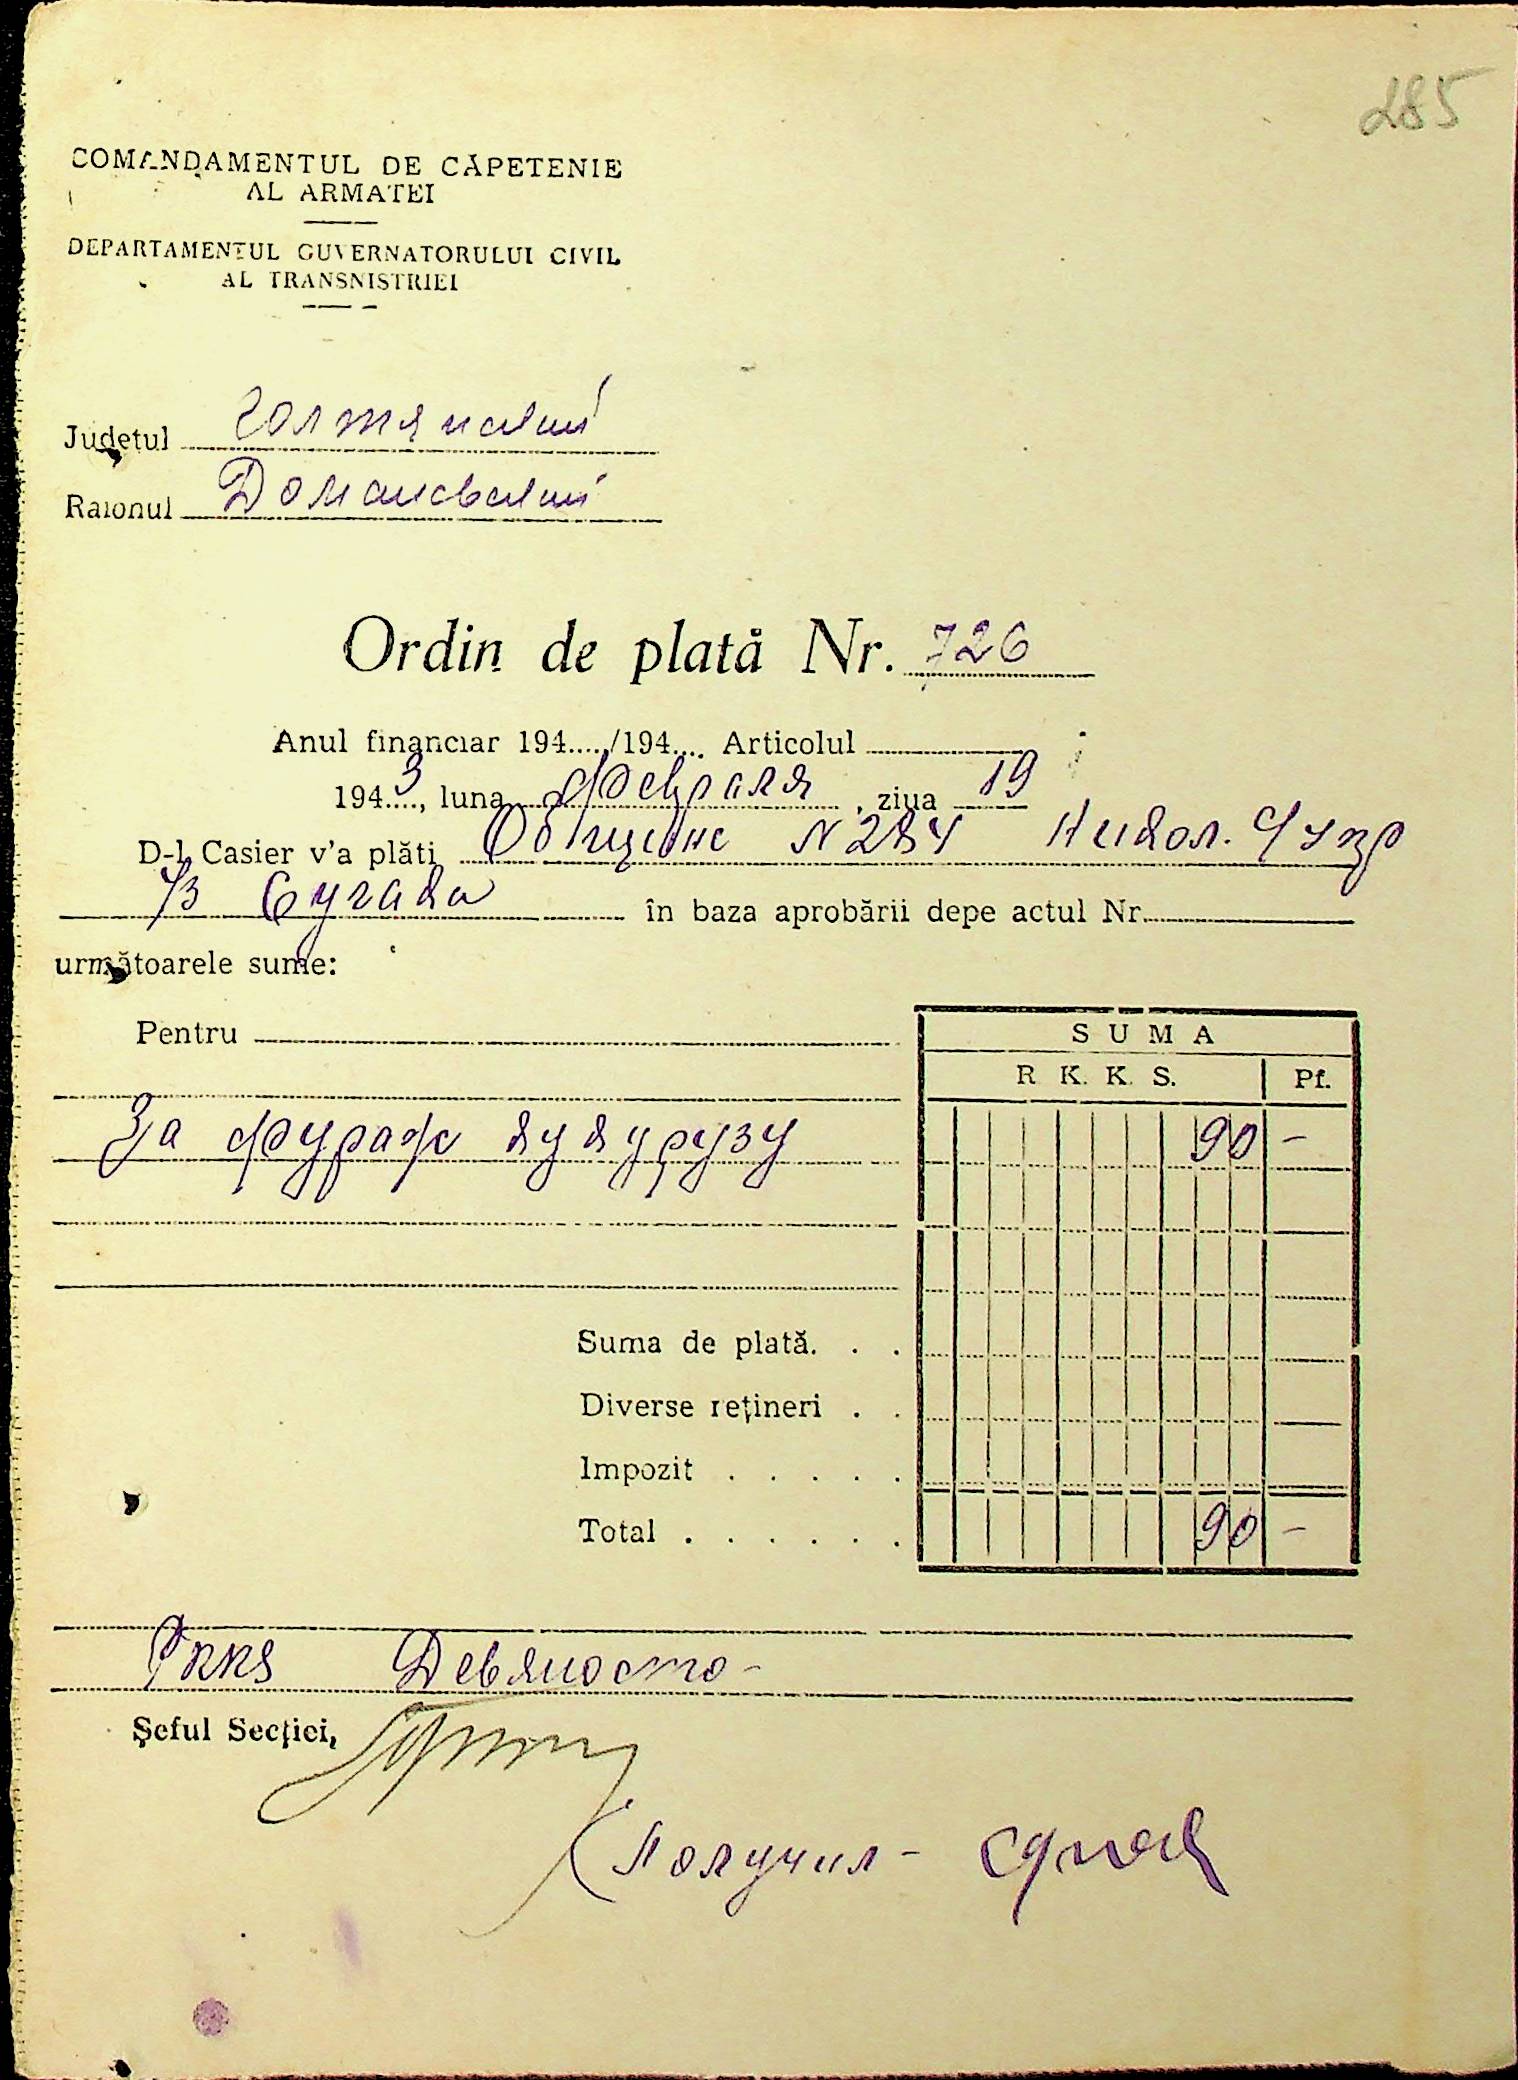 285
COMANDAMENTUL DE CĂPETENIE
AL ARMATEI
DEPARTAMENTUL GUVERNATORULUI CIVIL
AL TRANSNISTRIEI
Județul Голтянский
Raionul Доманевский
Ordin de plată Nr. 726
Anul financiar 194...../194.... Articolul
1943, luna февраля, ziua 19
D-l Casier v'a plăti Общине N 284 Никол.
în baza aprobării depe actul Nr.
următoarele sume:
Pentru
SUMA
R. K. K. S. Pf.
За фураж кукурузу 90 –
Suma de plată. . .
Diverse rețineri . .
Impozit . . . . .
Total . . . . . . 90 –
Rkks Девяносто –
Şeful Secţiei,
Получил –